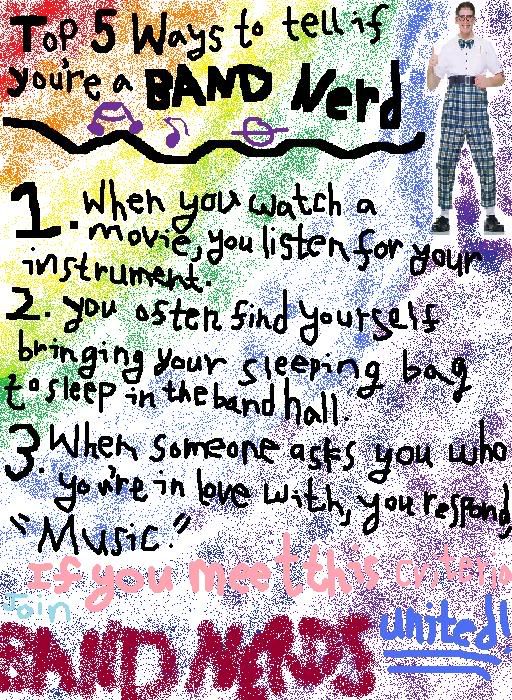 Top 5 Ways to tell if
you're a BAND Nerd
1. When you watch a
movie, you listen for your
instrument.
2. you often find yourself
bringing your sleeping bag
to sleep in the band hall.
3. When someone asks you who
you're in love with, you respond,
"Music."
If you meet this criteria
Join
BAND NERDS united!